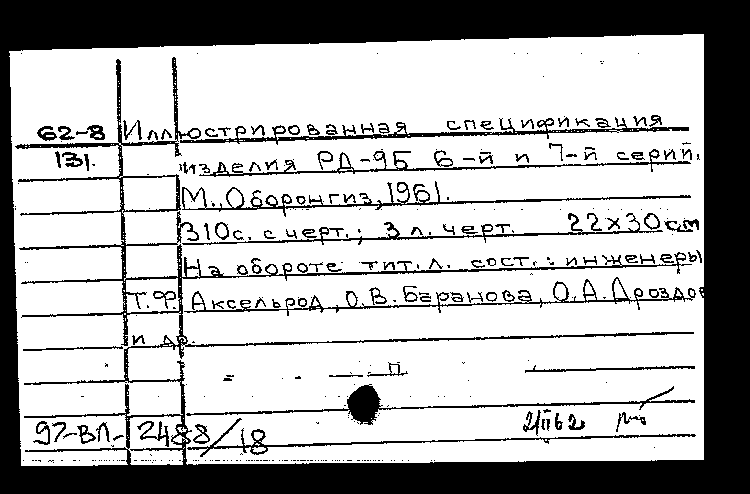 62-8 Иллюстрированная спецификация
131. изделия РД-9Б 6-й и 7-й серий.
М., Оборонгиз, 1961.
310с. с черт.; 3 л. черт. 22х30см
На обороте тит. л. сост.: инженеры
Т.Ф. Аксельрод, О.В. Баранова, О.А. Дроздов
и др.
п
97-ВЛ-2488/18 2/II 62